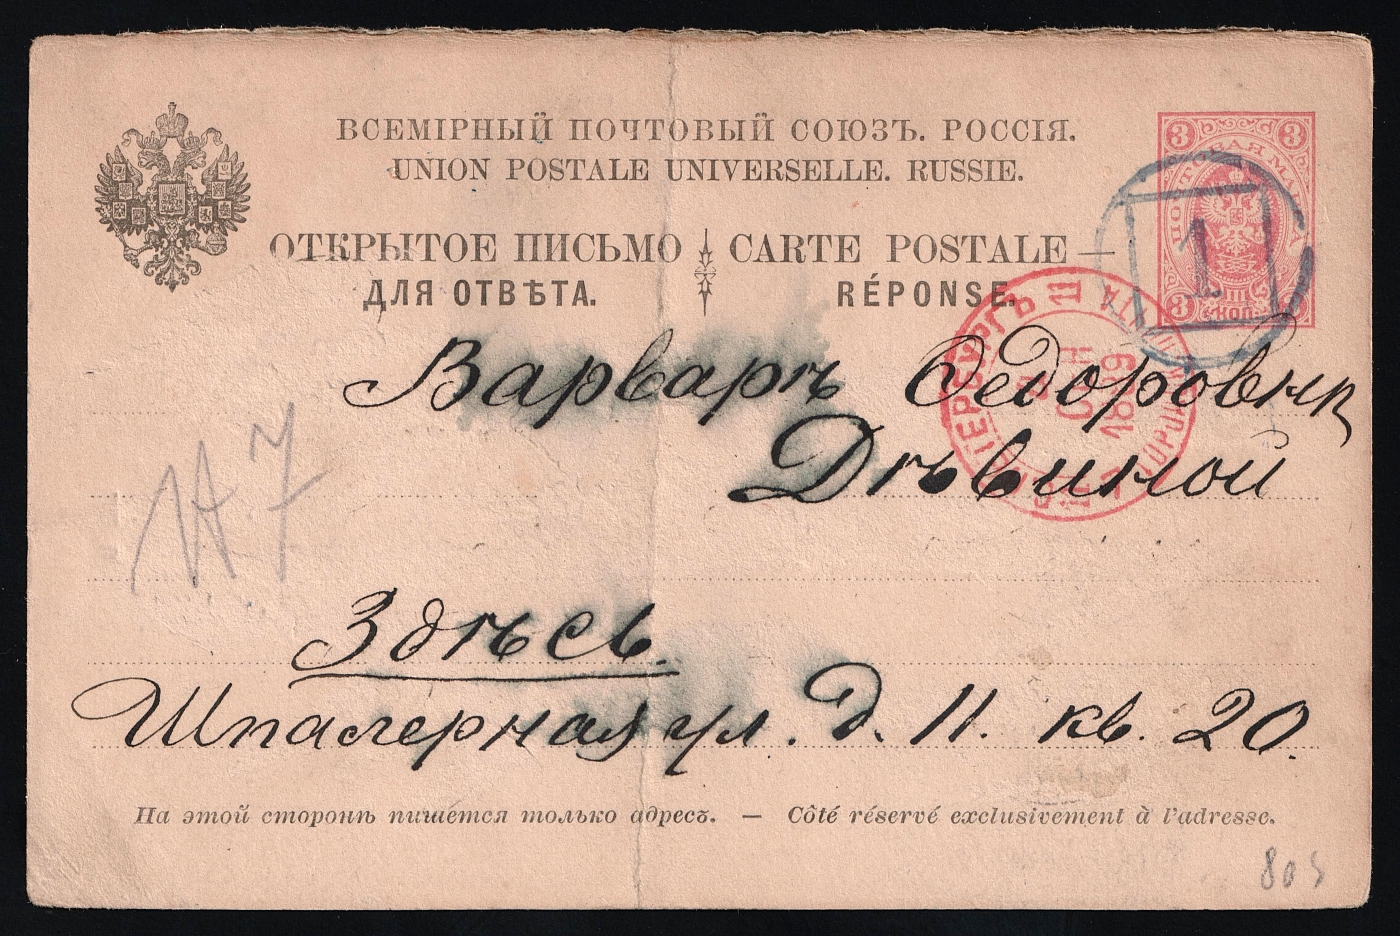 ВСЕМІРНЫЙ ПОЧТОВЫЙ СОЮЗЪ. РОССІЯ.
UNION POSTALE UNIVERSELLE. RUSSIE.
ОТКРЫТОЕ ПИСЬМО CARTE POSTALE
ДЛЯ ОТВѢТА. RÉPONSE.
3 3
3 КОП. 3
1
1899
Варварѣ Ѳедоровнѣ
Дѣвиной
7
Здѣсь.
Шпалерная ул. д. 11. кв. 20.
На этой сторонѣ пишется только адресъ. — Côté réservé exclusivement à l'adresse.
805